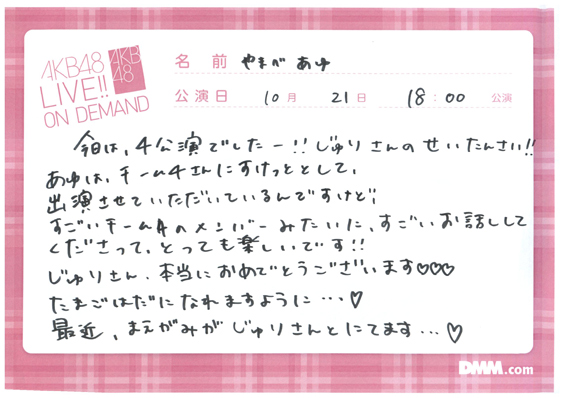 AKB48
LIVE!!
ON DEMAND
AKB
48
名 前 やまべ あゆ
公演日 10月 21日 18:00 公演
今日は、4公演でしたー!!じゅりさんのせいたんさい!!
あゆは、チーム4さんにすけっととして、
出演させていただいているんですけど;
すごいチーム4のメンバーみたいに、すごいお話しして
くださって、とっても楽しいです!!
じゅりさん、本当におめでとうございます♡♡♡
たまごはだになれますように…♡
最近、まえがみがじゅりさんとにてます…♡
DMM.com